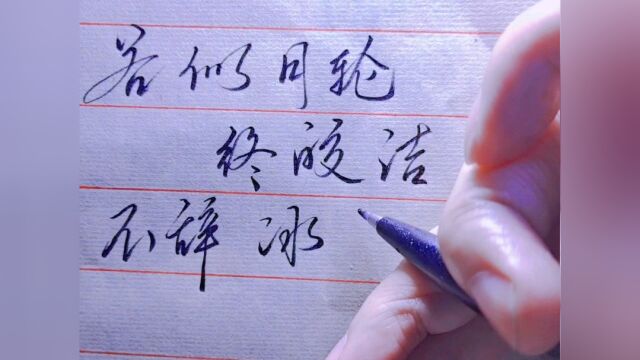 若似月轮
终皎洁
不辞冰